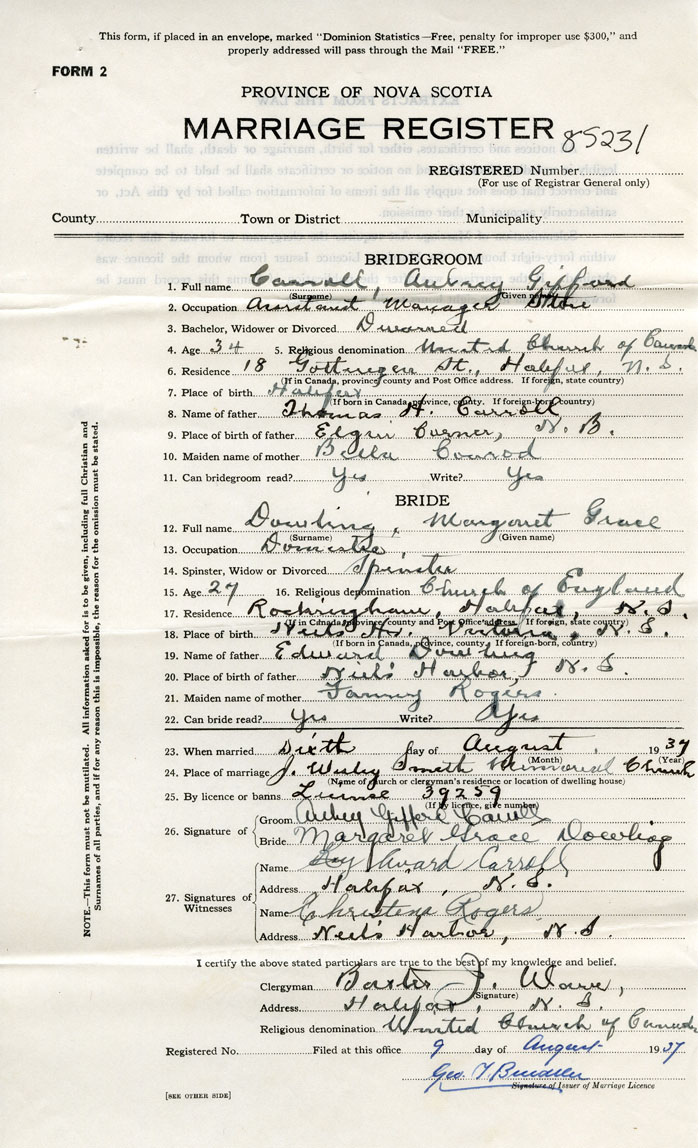 This form, if placed in an envelope, marked "Dominion Statistics—Free, penalty for improper use $300," and
properly addressed will pass through the Mail "FREE."
FORM 2
PROVINCE OF NOVA SCOTIA
MARRIAGE REGISTER 85231
REGISTERED Number
(For use of Registrar General only)
County Town or District Municipality
BRIDEGROOM
1. Full name Carroll, Aubrey Gifford
(Surname) (Given name)
2. Occupation Assistant Manager Store
3. Bachelor, Widower or Divorced Divorced
4. Age 34 5. Religious denomination United Church of Canada
6. Residence 18 Gottingen St., Halifax, N. S.
(If in Canada, province, county and Post Office address. If foreign, state country)
7. Place of birth Halifax
(If born in Canada, province, county. If foreign-born, country)
8. Name of father Thomas H. Carroll
9. Place of birth of father Elgin Corner, N. B.
10. Maiden name of mother Bella Conrod
11. Can bridegroom read? Yes Write? Yes
BRIDE
12. Full name Dowling, Margaret Grace
(Surname) (Given name)
13. Occupation Domestic
14. Spinster, Widow or Divorced Spinster
15. Age 27 16. Religious denomination Church of England
17. Residence Rockingham, Halifax, N. S.
(If in Canada, province, county and Post Office address. If foreign, state country)
18. Place of birth Neil's Hr. Victoria, N. S.
(If born in Canada, province, county. If foreign-born, country)
19. Name of father Edward Dowling
20. Place of birth of father Neil's Harbor, N. S.
21. Maiden name of mother Fanny Rogers
22. Can bride read? Yes Write? Yes
23. When married Sixth day of August 1937
(Month) (Year)
24. Place of marriage J. Wesley Smith Memorial Church
(Name of church or clergyman's residence or location of dwelling house)
25. By licence or banns License 39259
(If by licence, give number)
26. Signature of
Groom Aubrey Gifford Carroll
Bride Margaret Grace Dowling
27. Signatures of Witnesses
Name Award Carroll
Address Halifax, N. S.
Name Christena Rogers
Address Neil's Harbor, N. S.
I certify the above stated particulars are true to the best of my knowledge and belief.
Clergyman Baxter J.
(Signature)
Address Halifax, N. S.
Religious denomination United Church of Canada
Registered No. Filed at this office 9 day of August 1937
Geo. T.
Signature of Issuer of Marriage Licence
[SEE OTHER SIDE]
NOTE.—This form must not be mutilated. All information asked for is to be given, including full Christian and
Surnames of all parties, and if for any reason this is impossible, the reason for the omission must be stated.